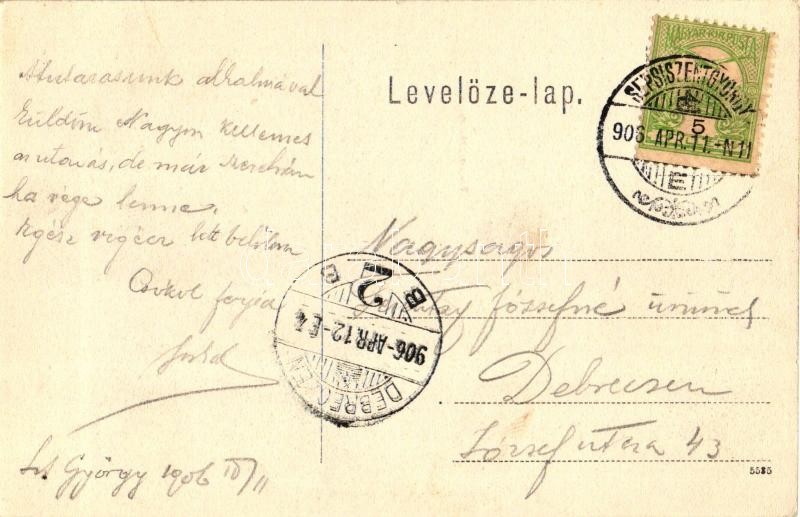 Átutazásunk alkalmával
küldöm Nagyon kellemes
az utazás, de már szeretném
ha vége lenne.
Egész vigécz lett belőlem
Csókol férjed
Szt György 1906 IV/11
Levelőze-lap.
MAGYAR KIR. POSTA
5
SEPSISZENTGYÖRGY
906 APR. 11.-N 11
E
Nagyságos
Józsefné úrnőnek
Debreczen
József utcza 43
DEBRECZEN
906-APR.12-É.4
2
B B
5535